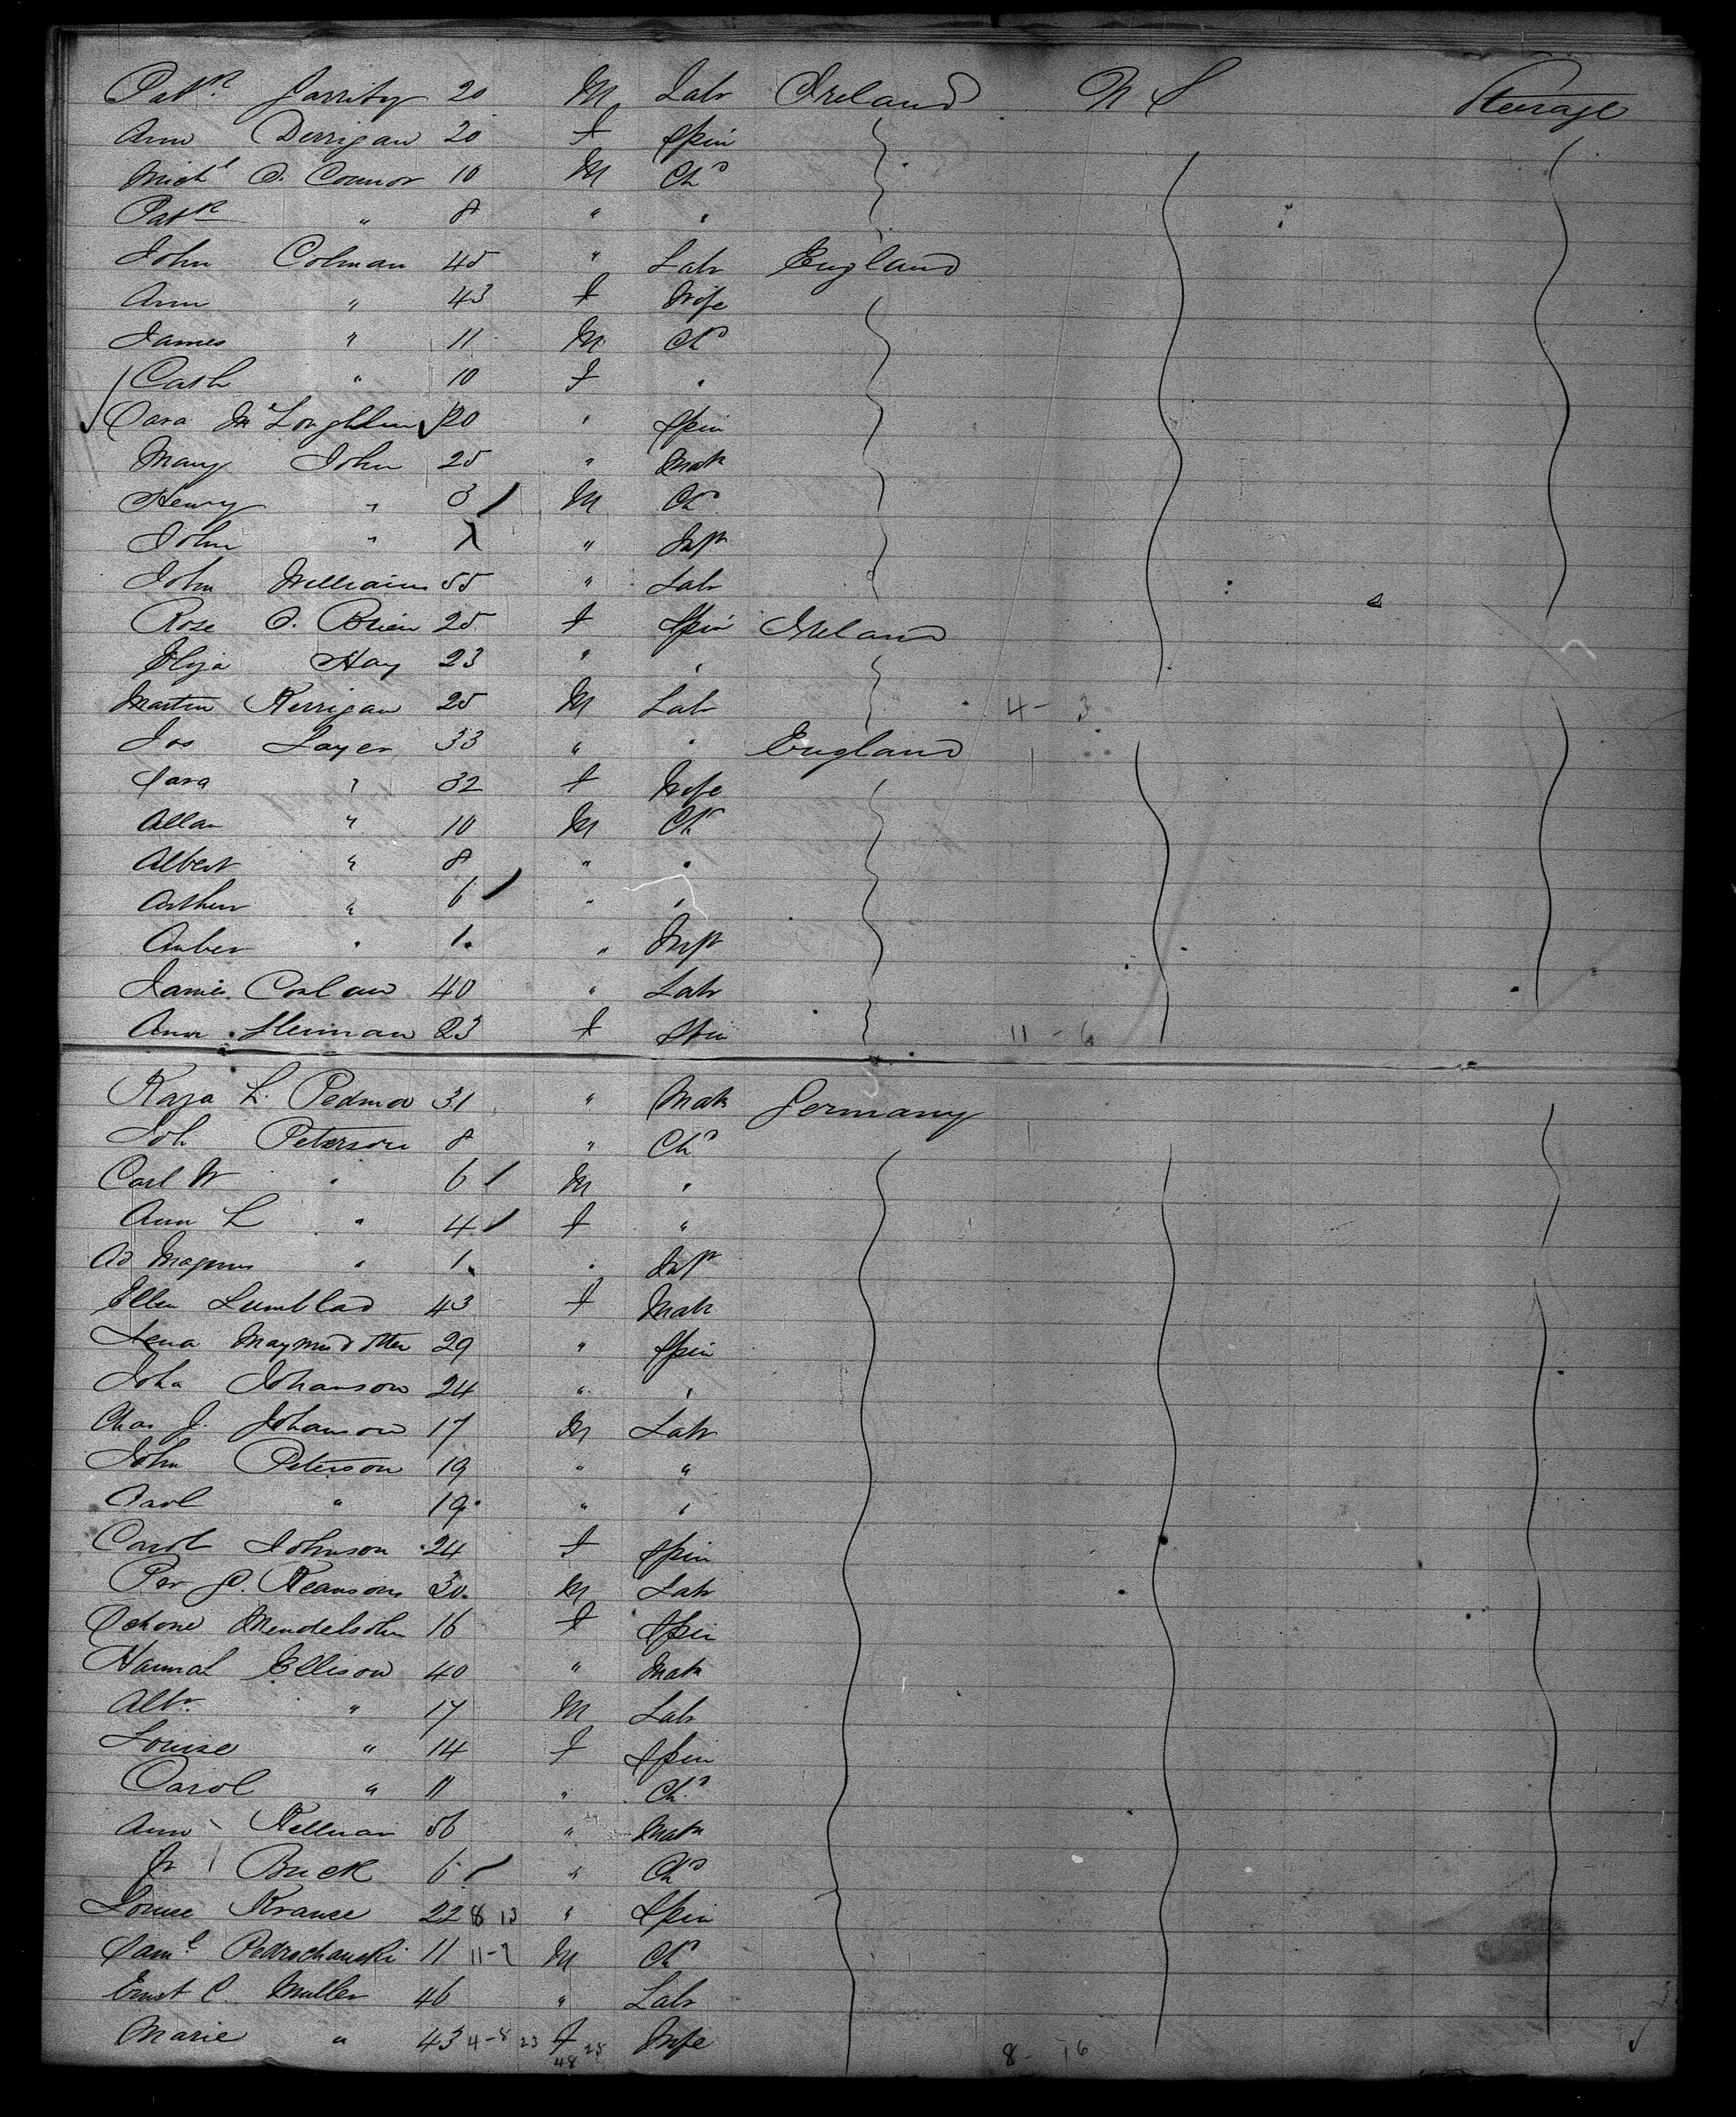 Patk Garrity 20 M Labr Ireland U S Steerage
Ann Derrigan 20 f Spin
Michl O. Connor 10 M Chd
Patk " 8 " "
John Colman 45 " Labr England
Ann " 43 f Wife
James " 11 M Chd
Cath " 10 f "
Sara McLoughlin 20 " Spin
Mary John 25 " Matr
Henry " 3 M Chd
John " " Inft
John Williams 55 " Labr
Rose O. Brien 25 f Spin Ireland
Eliza Hay 23 " "
Martin Kerrigan 25 M Labr 4 - 3
Jos Layer 33 " " England
Sara " 32 f Wife
Allan " 10 M Chd
Albert " 8 " "
Arthur " 6 " "
" 1 " Inft
James 40 " Labr
Ann 23 f Spin 11 - 6
Kaja L. 31 " Matr Germany
Joh Peterson 8 " Chd
Carl W " 6 M "
Ann L " 4 f "
Ad Magnus " 1 " Inft
Ellen Lumblad 43 f Matr
Lena 29 " Spin
Joha Johanson 24 " "
Chas J. Johanson 17 M Labr
John Peterson 19 " "
Carl " 19 " "
Carol Johnson 24 f Spin
Per 30 M Labr
Mendelsohn 16 f Spin
Hannah Ellison 40 " Matr
Albr " 17 M Labr
Louise " 14 f Spin
Carol " 11 " Chd
Ann Kellman 56 " Matr
Buck 6 " Chd
Louise Krause 22 8 13 " Spin
Saml Pedrschanski 11 11-2 M Chd
Ernst C Muller 46 " Labr
Marie " 43 4-8 23 f Wife 8 - 16
48 25